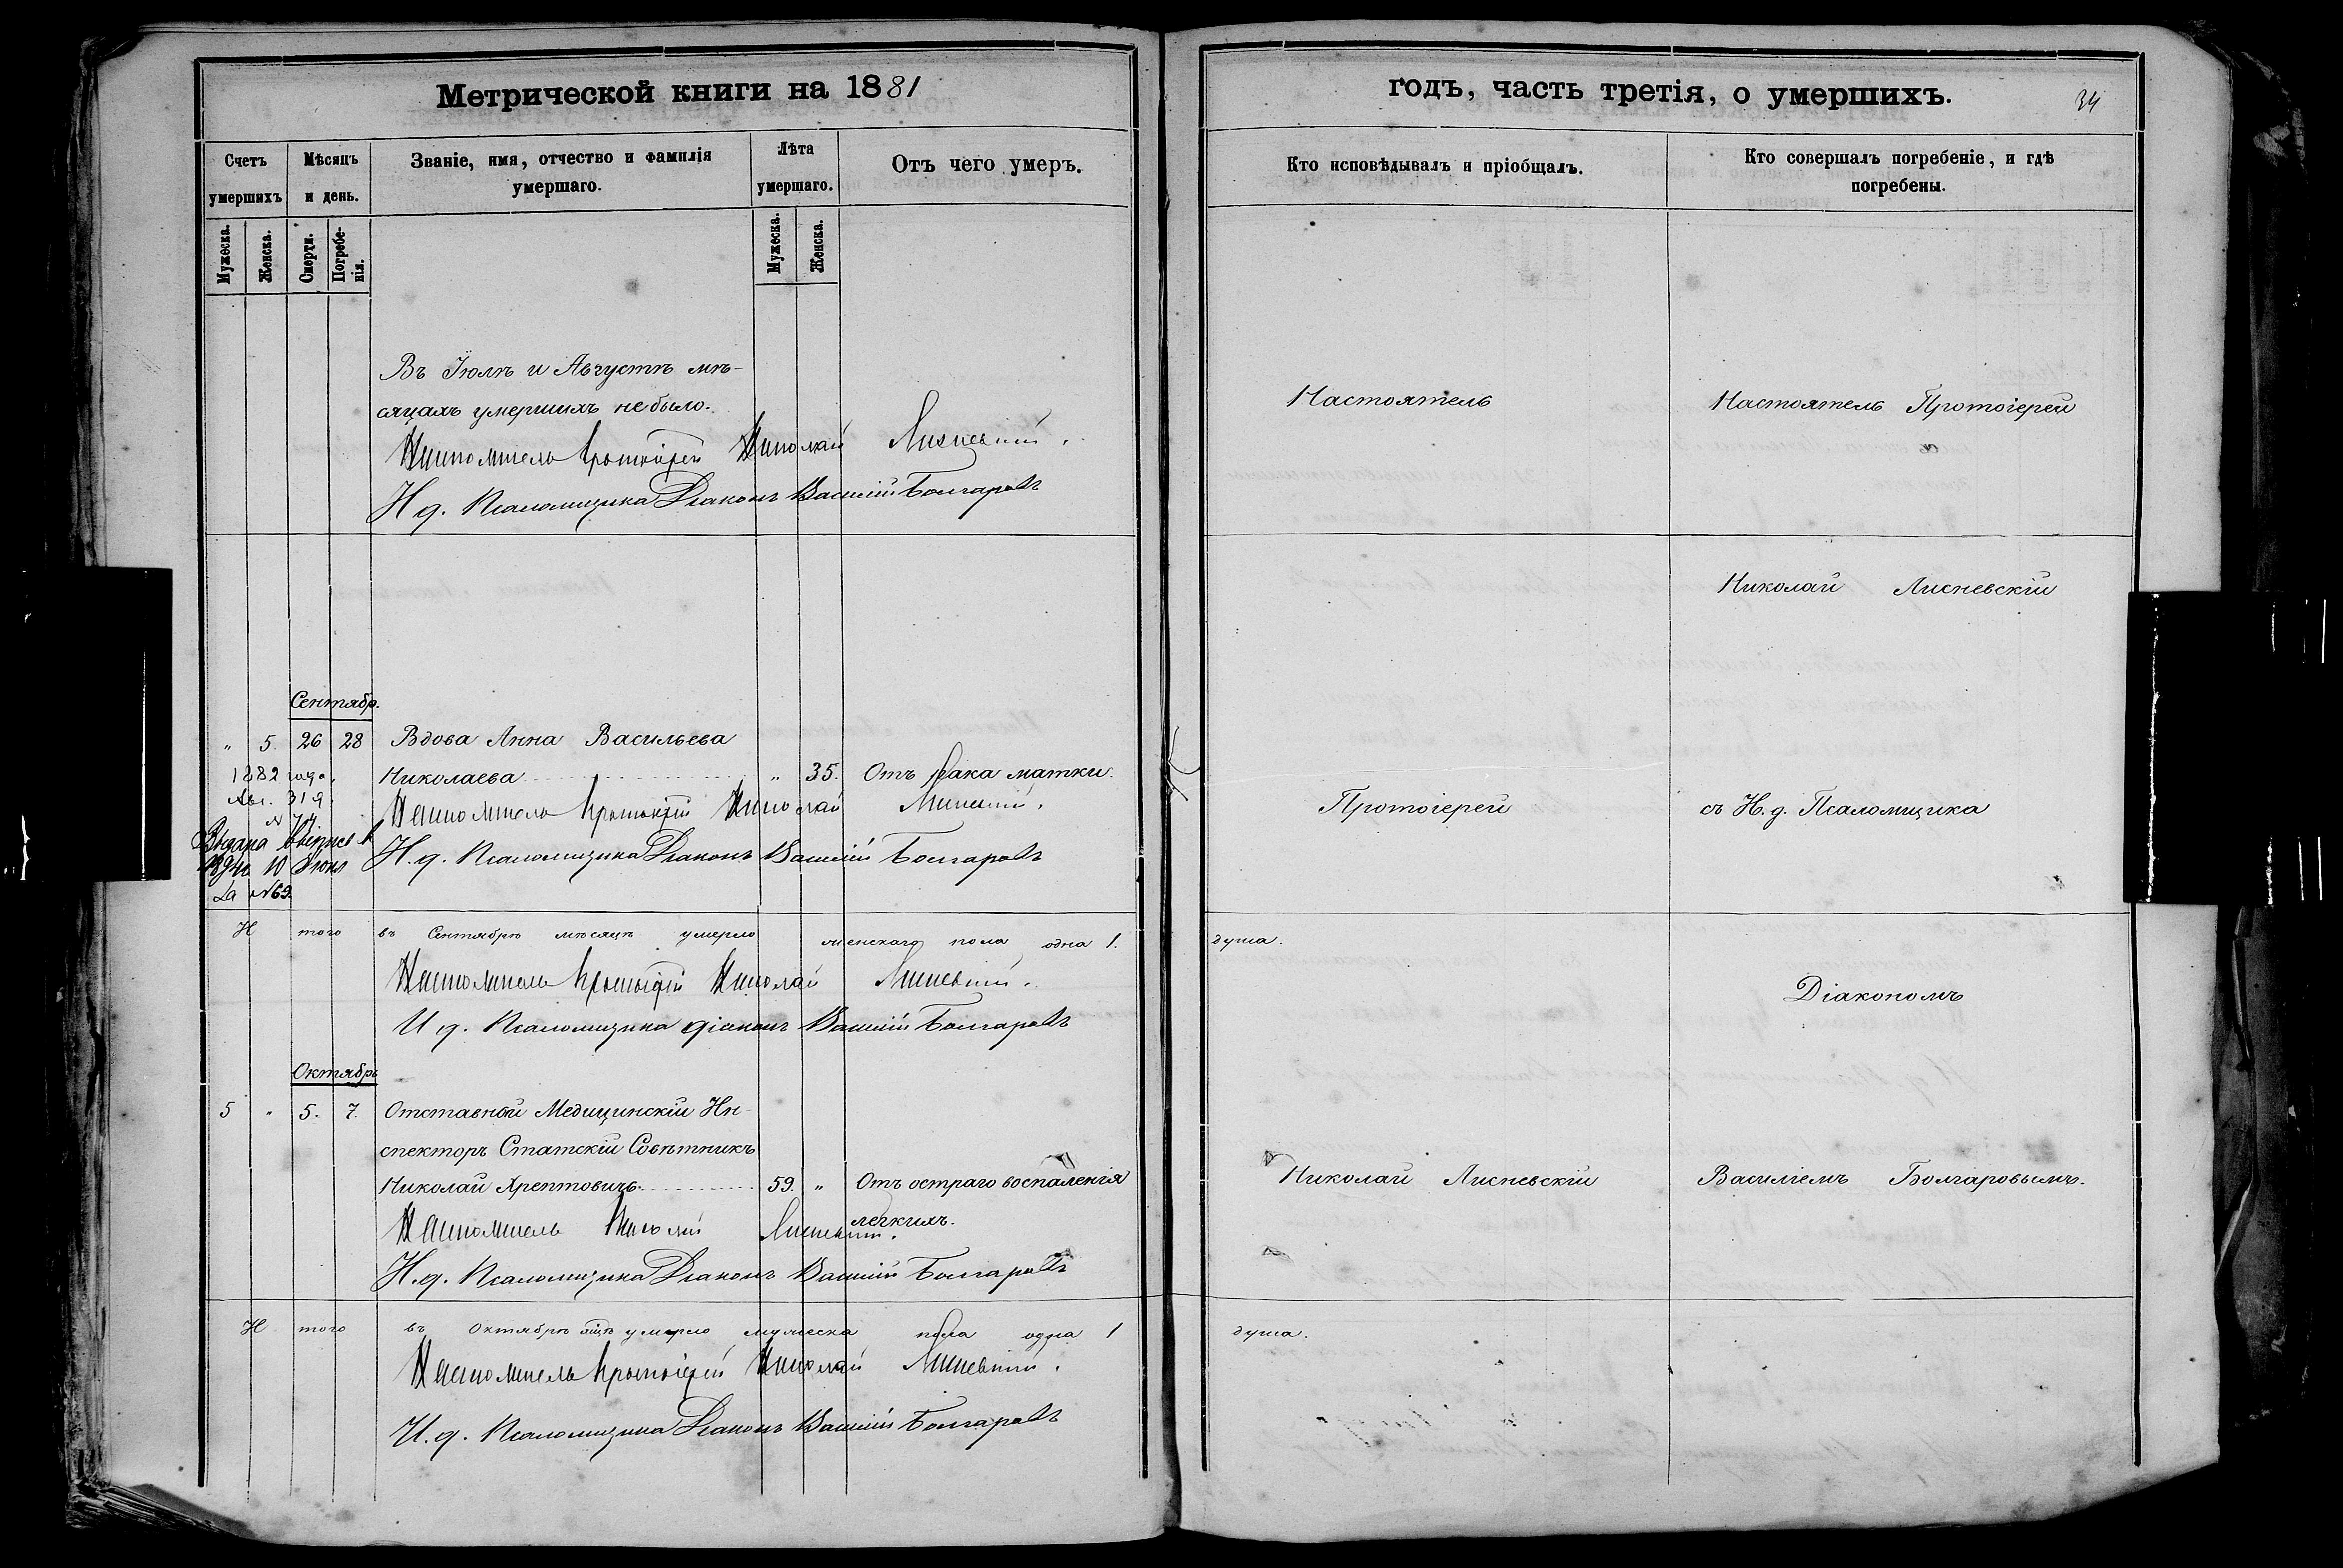 Метрической книги на 1881
Счетъ умершихъ
Мѣсяцъ и день.
Званіе, имя, отчество и фамилія умершаго.
Лѣта умершаго.
Отъ чего умеръ.
Мужеска.
Женска.
Смерти.
Погребе-
нія.
Мужеска.
Женска.
Въ Іюлѣ и Августѣ мѣ-
сяцахъ умершихъ не было.
Настоятель Протоіерей Николай Лисневскій.
И д. Псаломщика Діаконъ Василій Болгаровъ
Сентябр.
" 5. 26 28 Вдова Анна Васильева
Николаева " 35. Отъ рака матки.
1882 года.
319.
№ 74
Выдана
10 Іюня
за №69.
Настоятель Протоіерей Николай Лисневскій.
И. д. Псаломщика Діаконъ Василій Болгаровъ
Итого въ Сентябрѣ мѣсяцѣ умерло женскаго пола одна 1.
Настоятель Протоіерей Николай Лисневскій.
И д. Псаломщика діаконъ Василій Болгаровъ
Октябрь
5 " 5. 7. Отставной Медицинскій Ин-
спекторъ Статскій Совѣтникъ
Николай Хрептовичъ. 59. " Отъ остраго воспаленія
легкихъ.
Настоятель Николай Лисневскій.
И. д. Псаломщика Діаконъ Василій Болгаровъ
Итого въ Октябрѣ мцѣ умерло мужеска пола одна 1
Настоятель Протоіерей Николай Лисневскій.
И. д. Псаломщика Діаконъ Василій Болгаровъ
годъ, часть третія, о умершихъ.
34
Кто исповѣдывалъ и пріобщалъ.
Кто совершалъ погребеніе, и гдѣ
погребены.
Настоятель
Протоіерей
душа.
Николай Лисневскій
душа.
Настоятель Протоіерей
Николай Лисневскій
съ И. д. Псаломщика
Діакономъ
Василіемъ Болгаровымъ.